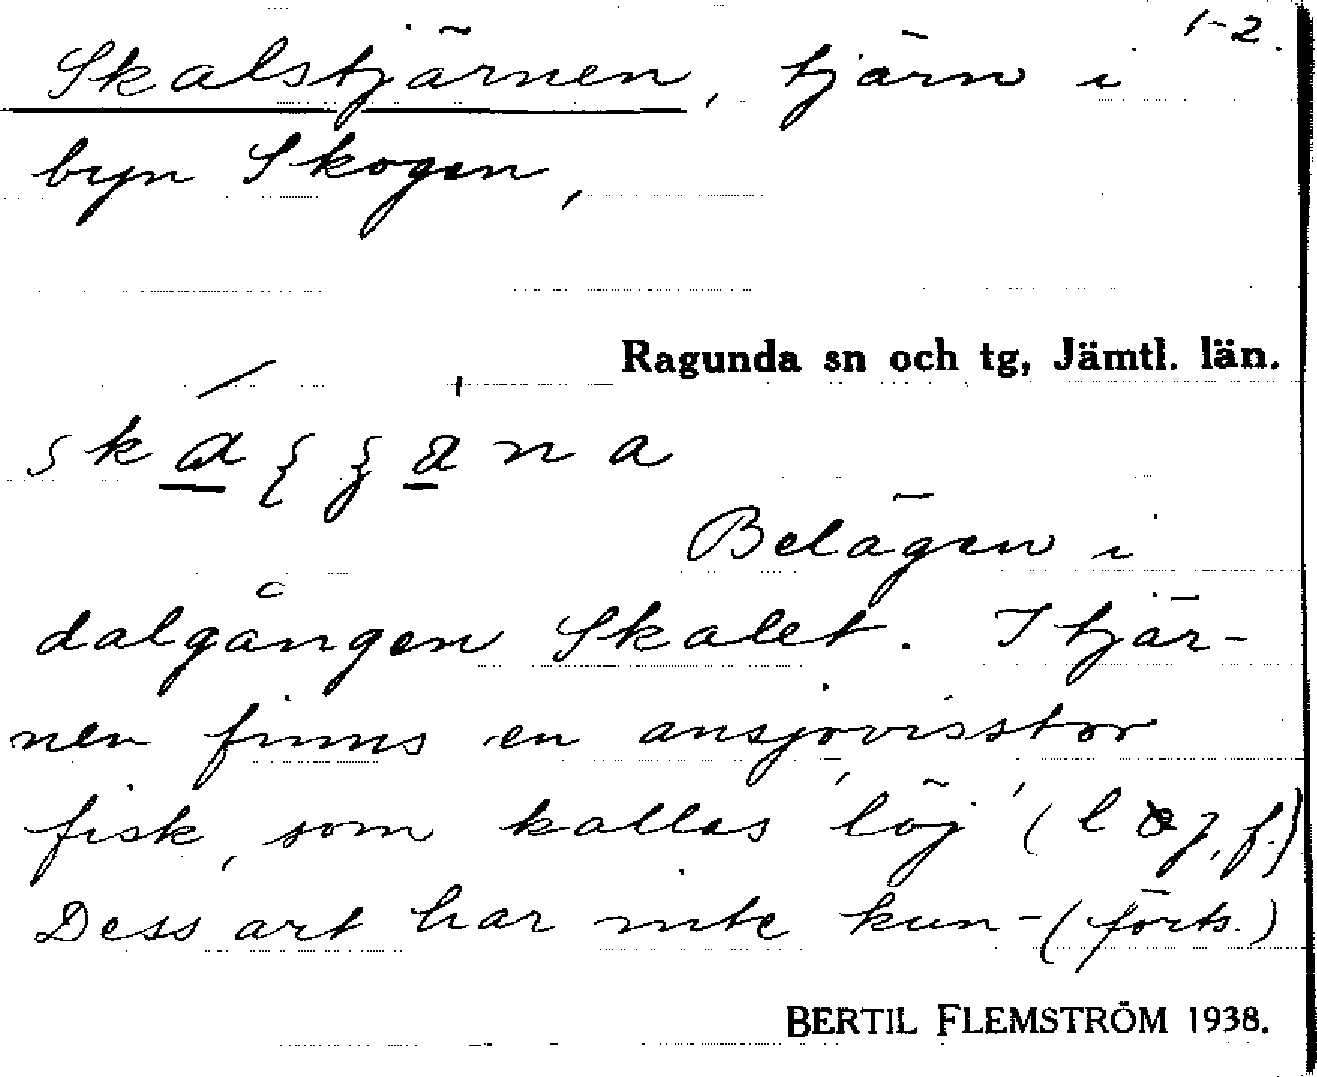 1-2.
Skalstjärnen, tjärn i
byn Skogen,
Ragunda sn och tg, Jämtl. län.
Belägen i
dalgången Skalet. I tjär-
nen finns en ansjovisstor
fisk, som kallas 'löj' (
Dess art har inte kun- (forts.)
BERTIL FLEMSTRÖM 1938.